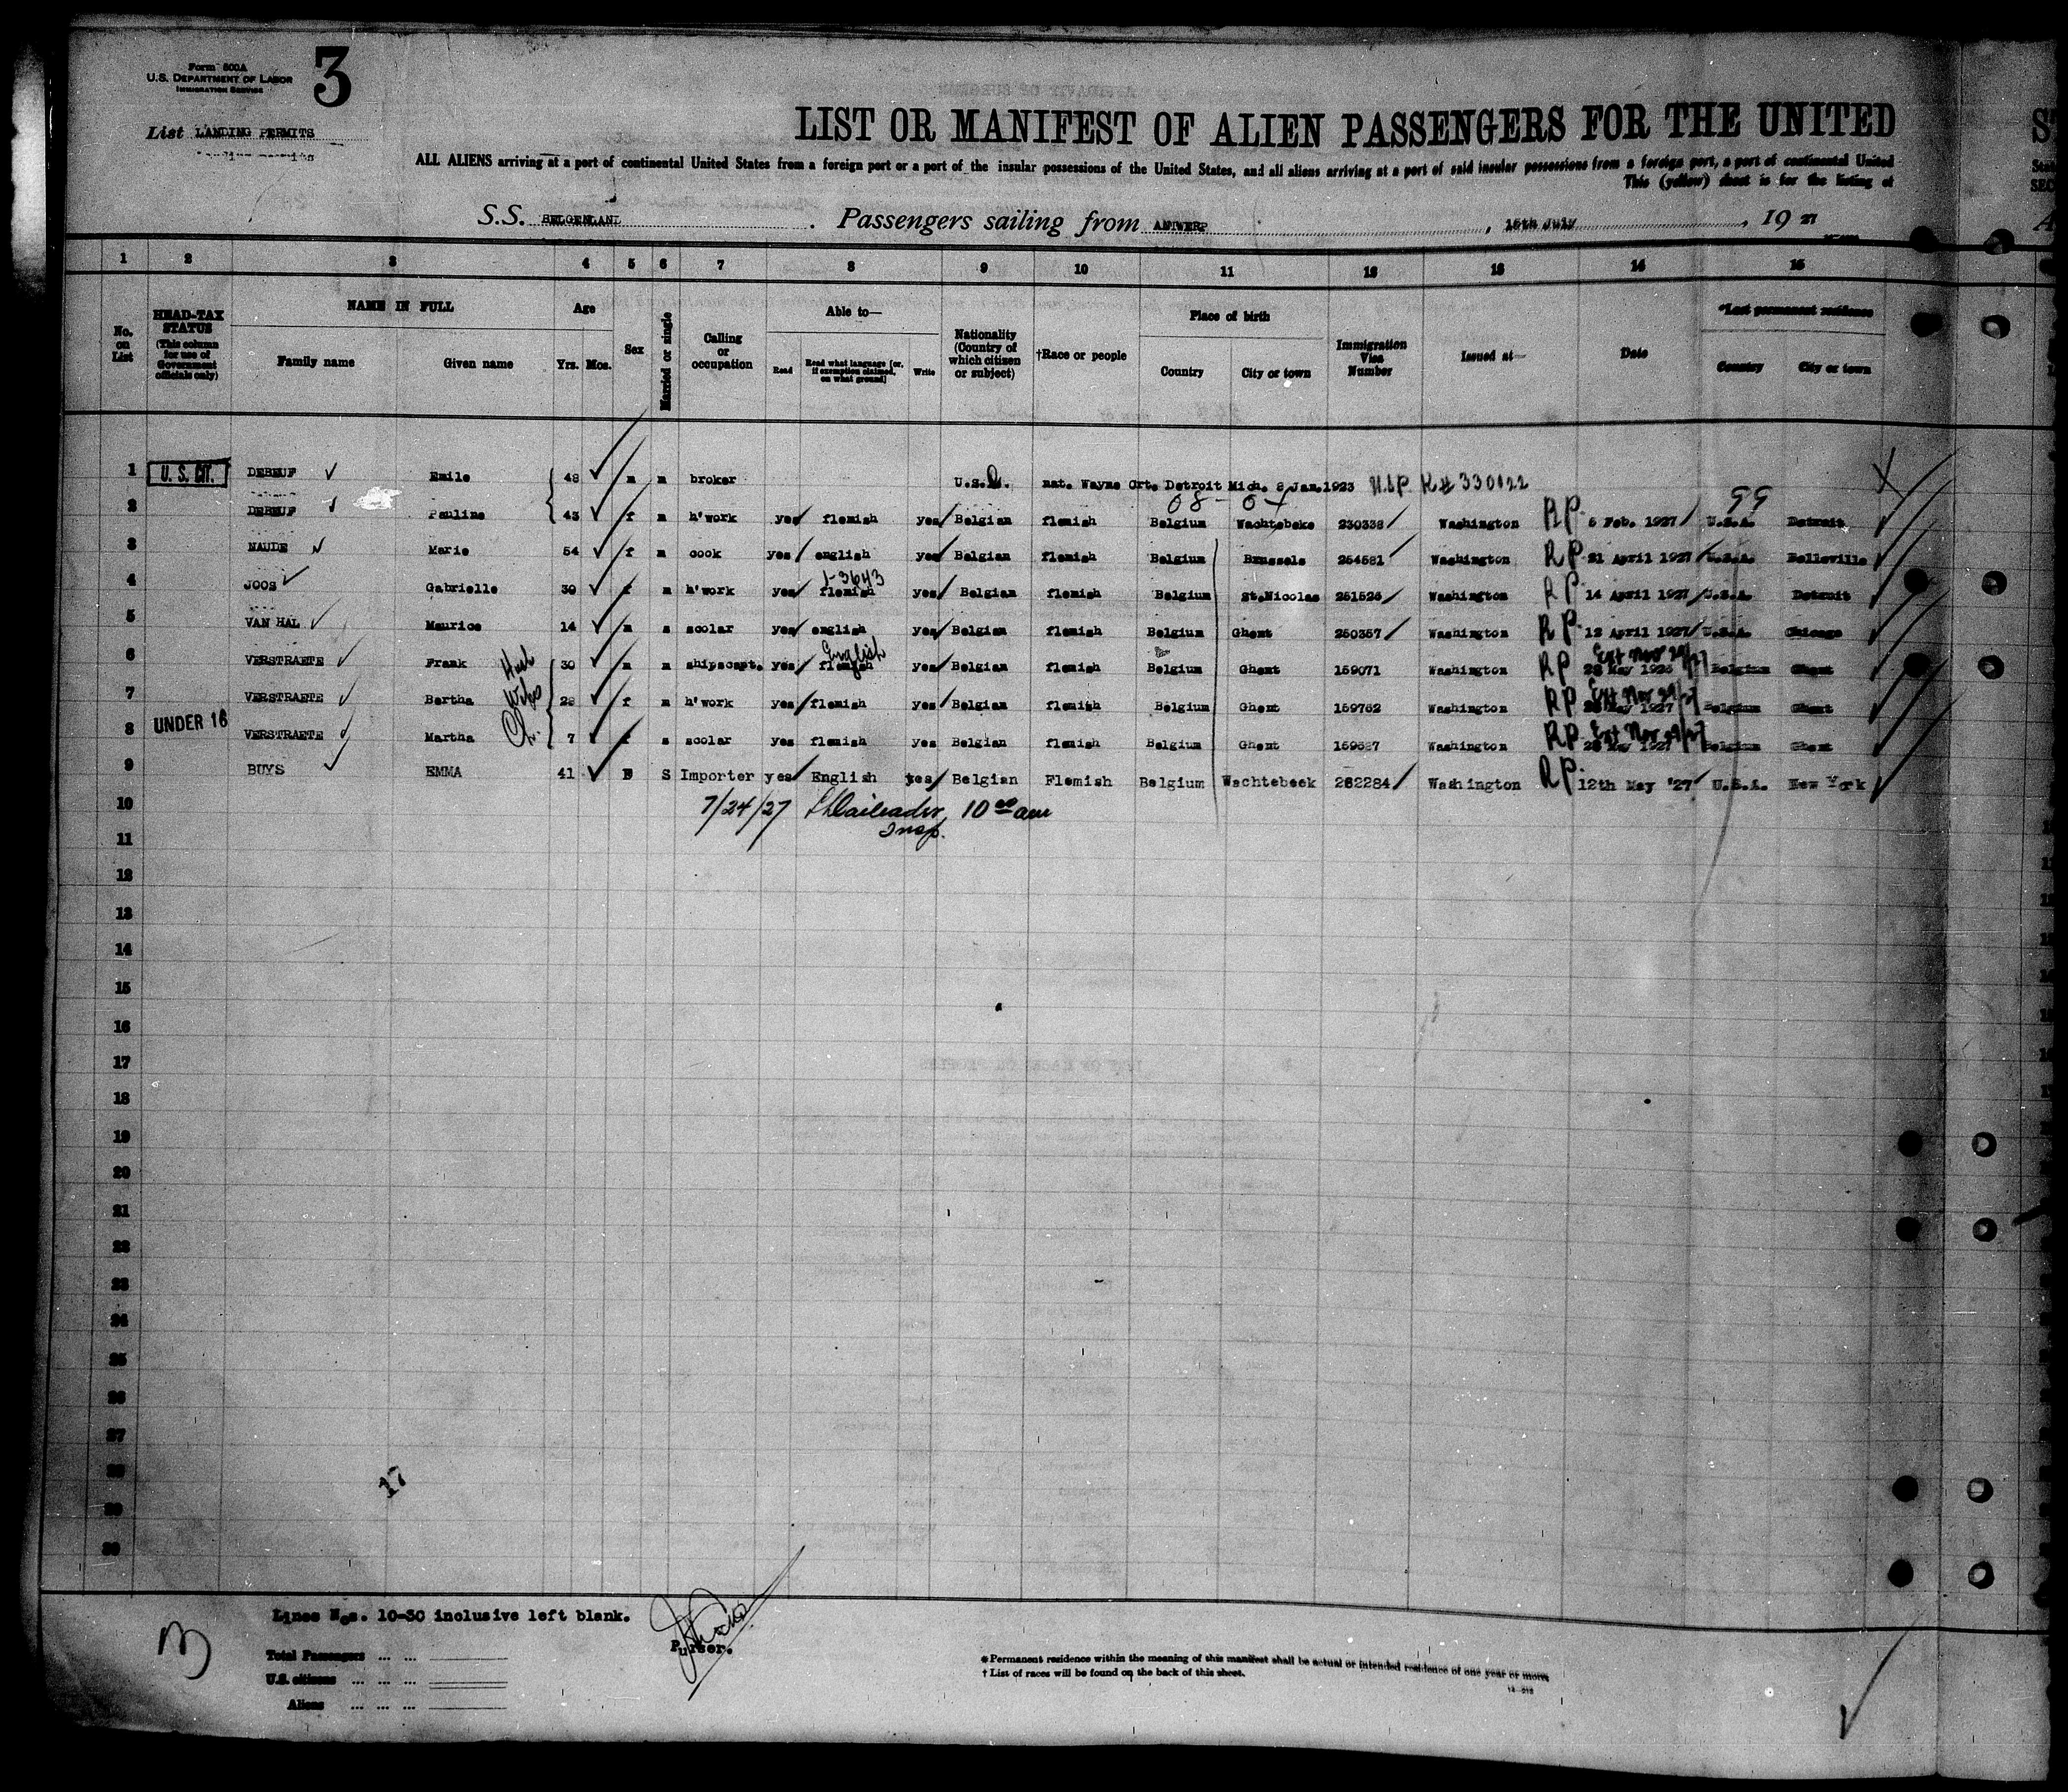 Form 500A
U.S. DEPARTMENT OF LABOR
IMMIGRATION SERVICE
3
List LANDING PERMITS
LIST OR MANIFEST OF ALIEN PASSENGERS FOR THE UNITED
ALL ALIENS arriving at a port of continental United States from a foreign port or a port of the insular possessions of the United States, and all aliens arriving at a port of said insular possessions from a foreign port, a port of continental United
This (yellow) sheet is for the listing of
S.S. BELGENLAND. Passengers sailing from ANTWERP, 15th July, 1927
1 2 3 4 5 6 7 8 9 10 11 12 13 14 15
No. on List
HEAD-TAX STATUS (This column for use of Government officials only)
NAME IN FULL
Family name Given name
Age
Yrs. Mos.
Sex
Married or single
Calling or occupation
Able to—
Read Read what language [or, if exemption claimed, on what ground] Write
Nationality (Country of which citizen or subject)
†Race or people
Place of birth
Country City or town
Immigration Visa Number
Issued at—
Date
*Last permanent residence
Country City or town
1 U. S. CIT. DEBEUF Emile 48 m m broker U.S. nat. Wayne Crt. Detroit Mich. 8 Jan. 1923 330122
2 DEBEUF Pauline 43 f m h'work yes flemish yes Belgian flemish Belgium Wachtebeke 230338 Washington RP 5 Feb. 1927 U.S.A. Detroit
3 NAUDE Marie 54 f m cook yes english yes Belgian flemish Belgium Brussels 254581 Washington RP 21 April 1927 U.S.A. Belleville
1-3643
4 JOOS Gabrielle 30 f m h'work yes flemish yes Belgian flemish Belgium St.Nicolas 251526 Washington RP 14 April 1927 U.S.A. Detroit
5 VAN HAL Maurice 14 m s scolar yes english yes Belgian flemish Belgium Ghent 250357 Washington RP 12 April 1927 U.S.A. Chicago
English Ext Nov 29/27
6 VERSTRAETE Frank Hus 30 m m shipscapt. yes flemish yes Belgian flemish Belgium Ghent 159071 Washington RP 28 May 1926 Belgium Ghent
Ext Nov 29/27
7 VERSTRAETE Bertha Wife 28 f m h'work yes flemish yes Belgian flemish Belgium Ghent 159762 Washington RP May 1927 Belgium Ghent
Ext Nov 29/27
8 UNDER 16 VERSTRAETE Martha Ch. 7 f s scolar yes flemish yes Belgian flemish Belgium Ghent Washington RP 28 May 1927 Belgium Ghent
9 BUYS EMMA 41 S Importer yes English yes Belgian Flemish Belgium Wachtebeek 262284 Washington RP 12th May '27 U.S.A. New York
10 7/24/27 10 00 am
Insp.
11
12
13
14
15
16
17
18
19
20
21
22
23
24
25
26
27
28
29
30
17
Lines Nos. 10-30 inclusive left blank.
Purser.
3
Total Passengers ... ...
U.S. citizens ... ... ...
Aliens ... ... ...
*Permanent residence within the meaning of this manifest shall be actual or intended residence of one year or more.
† List of races will be found on the back of this sheet.